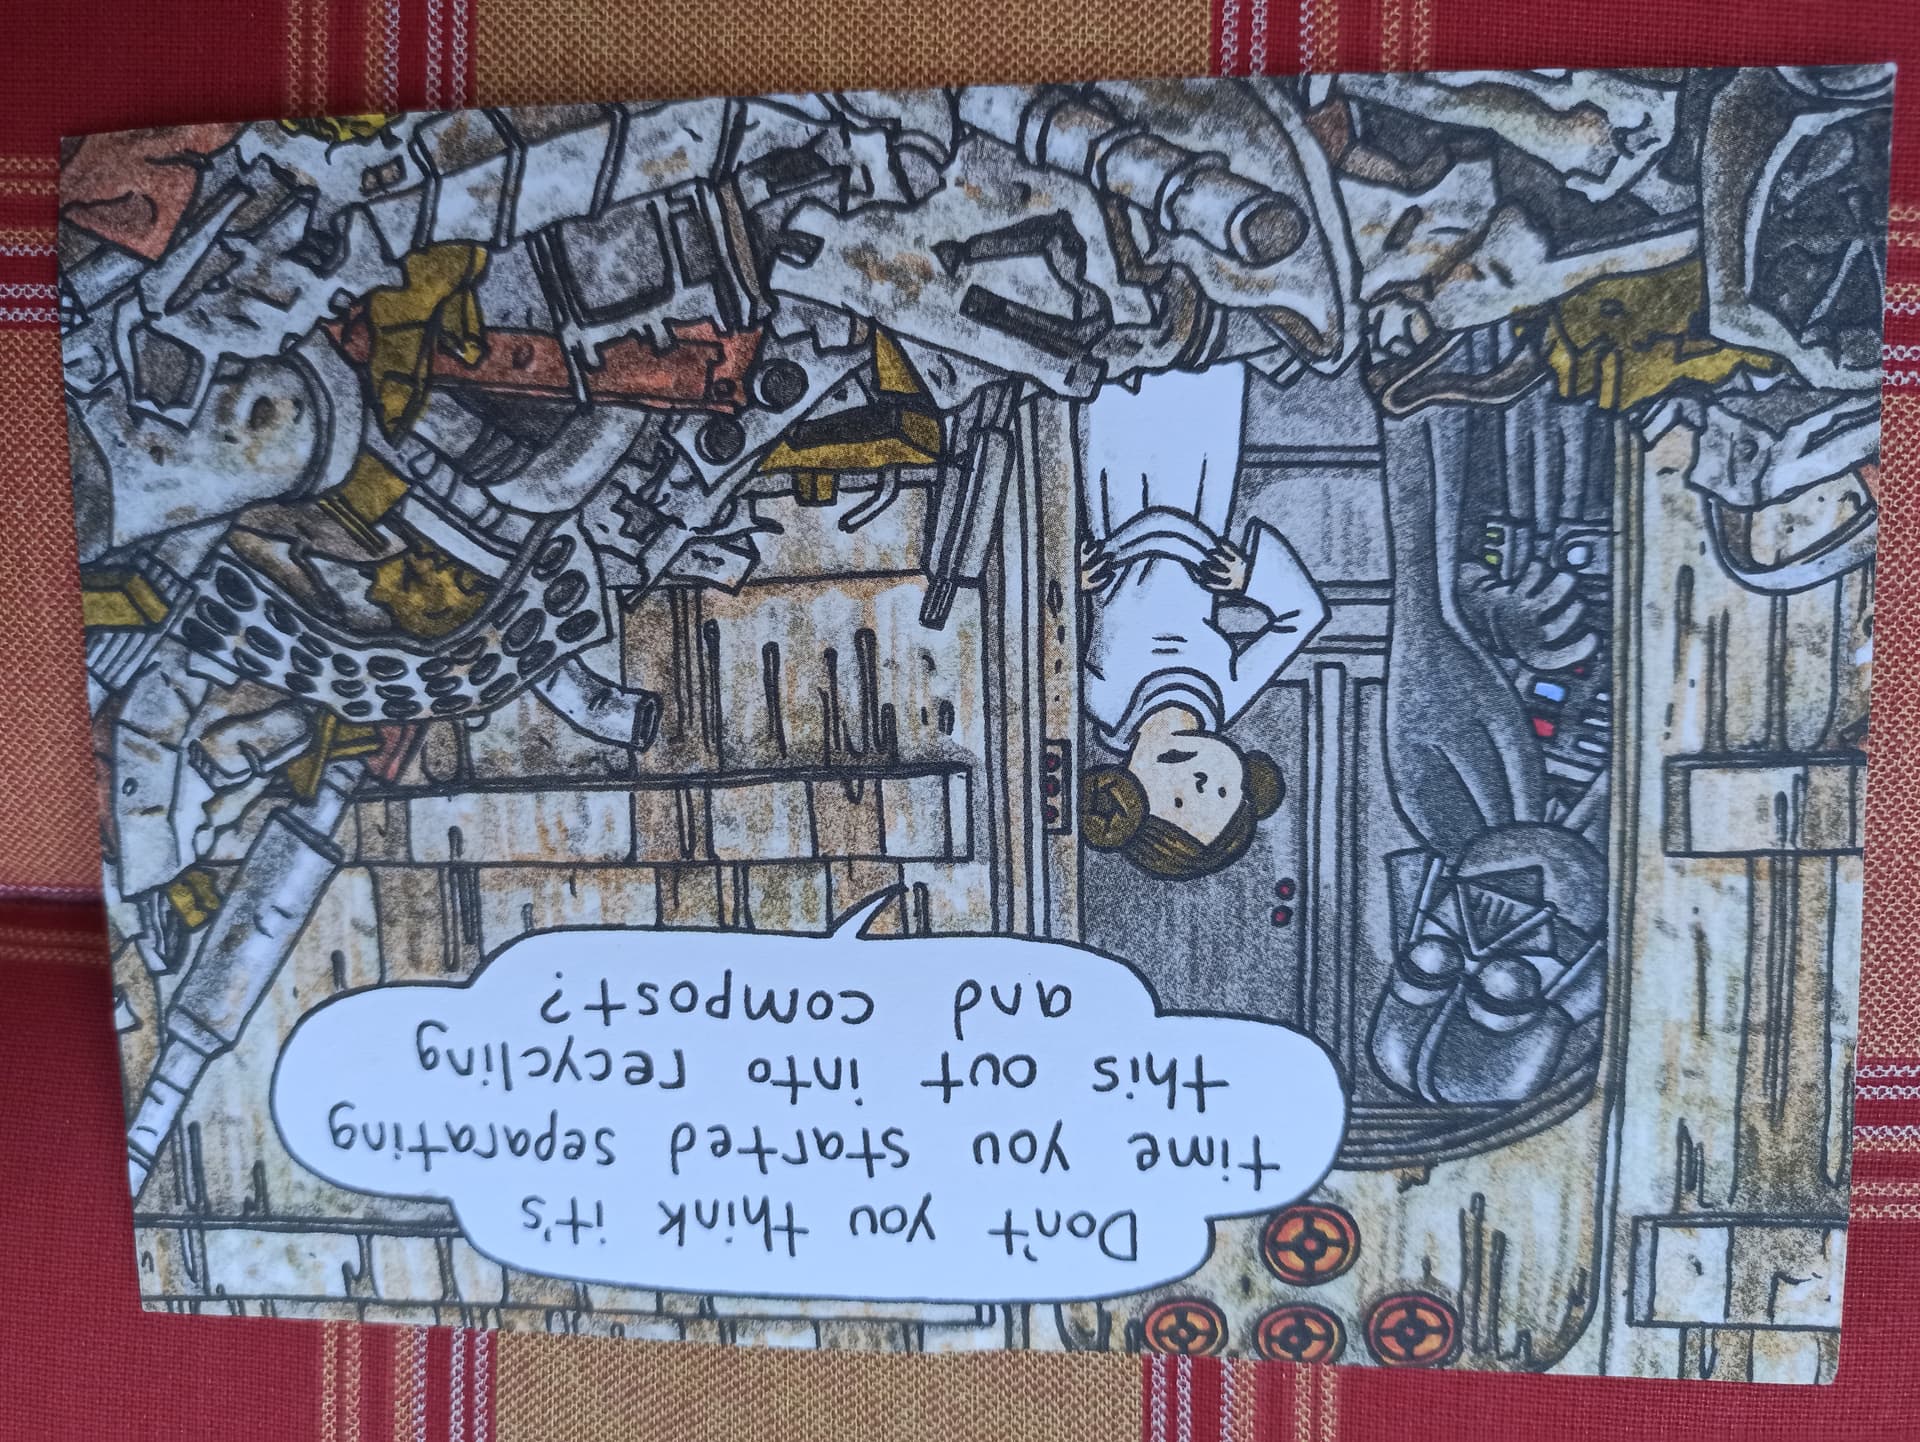 Don't you think it's
time you started separating
this out into recycling
and compost?